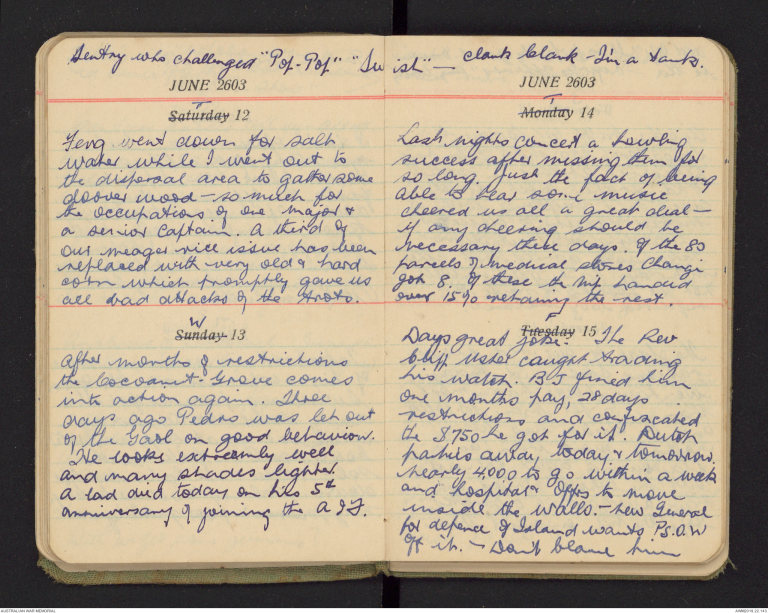 Sentry who challenged "Pop-Pop" "Swish" — clank clank - I'm a tank.
JUNE 2603
T
Saturday 12
Feng went down for salt
water while I went out to
the disposal area to gather some
doover wood - so much for
the occupations of one major &
a senior Captain. A third of
our meager rice issue has been
replaced with very old & hard
corn which promptly gave us
all bad attacks of the trots.
W
Sunday 13
After months of restrictions
the Cocoanut-Grove comes
into action again. Three
days ago Pedro was let out
of the Gaol on good behaviour.
He looks extreamly well
and many shades lighter.
A lad died today on his 5th
anniversary of joining the A.I.F.
JUNE 2603
T
Monday 14
Last nights concert a howling
success after missing them for
so long. Just the fact of being
able to hear some music
cheered us all a great deal -
if any cheering should be
necessary these days. Of the 83
parcels of medical stores Changi
got 8. Of these the Nip handed
over 15% retaining the rest.
F
Tuesday 15
Days great joke. The Rev
Usher caught trading
his watch. BJ fined him
one months pay, 28 days
restrictions and confiscated
the $750 he got for it. Dutch
parties away today & tomorrow.
nearly 4000 to go within a week
and hospital & Offrs to move
inside the walls. - new General
for defence of Island wants Ps.O.W
off it. - Don't blame him
AUSTRALIAN WAR MEMORIAL